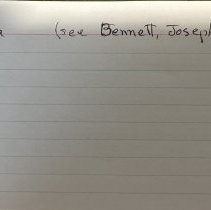 (see Bennett, Joseph